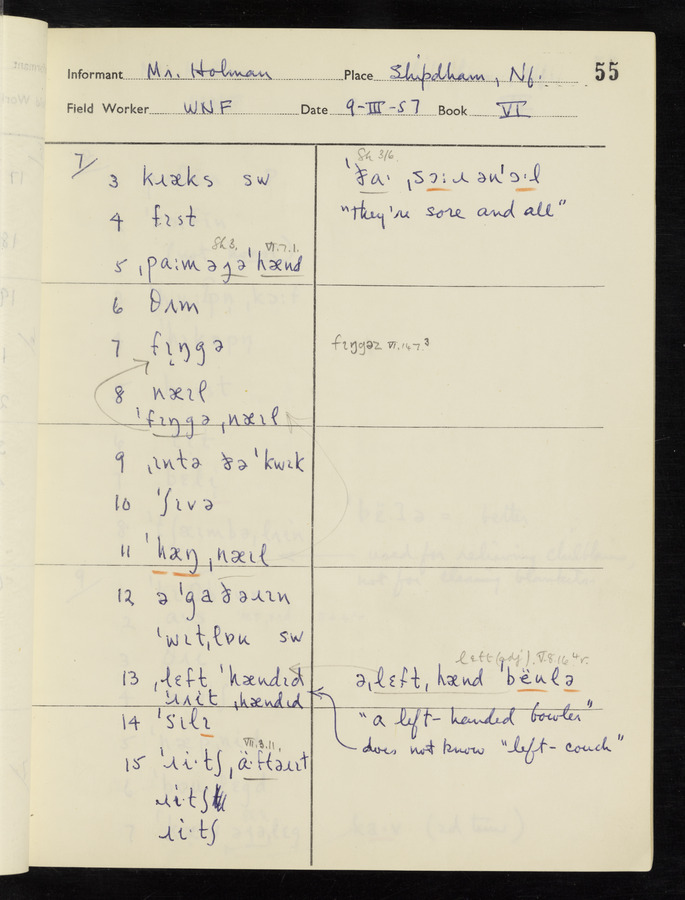 Informant Mr. Holman Place Shipdham, Nf. 55
Field Worker WNF Date 9-III-57 Book VI
7/
3 kɹæks sw
4 fɪst
5 ˌpaːm əɟə ˈhænd
Sh 3. VI.7.1.
6 θʌm
7 fɪŋgə
8 næɪl
ˈfɪŋgəˌnæɪl
9 ˌɪntə ðə ˈkwɪk
10 ˈʃɪvə
11 ˈhæŋˌnæɪl
12 ə ˈgaðəɹɪn
ˈwɪtˌlɒu sw
13 ˌlɛft ˈhændɪd
ˈɹɪit ˌhændɪd
14 ˈsɪlɪ
15 ˈɹiˑtʃ ˌäˑftəɹɪt
VII.3.11.
ɹiˑtʃ
ɹiˑtʃ
Sh 3/6.
ˈðaˑ ˌsɔːɹ ənˈɔˑl
"they're sore and all"
fɪŋgəz VI.14.7.3
left (adj)
əˌlɛftˌhænd ˈbëulə
"a left-handed bowler"
does not know "left-couch"